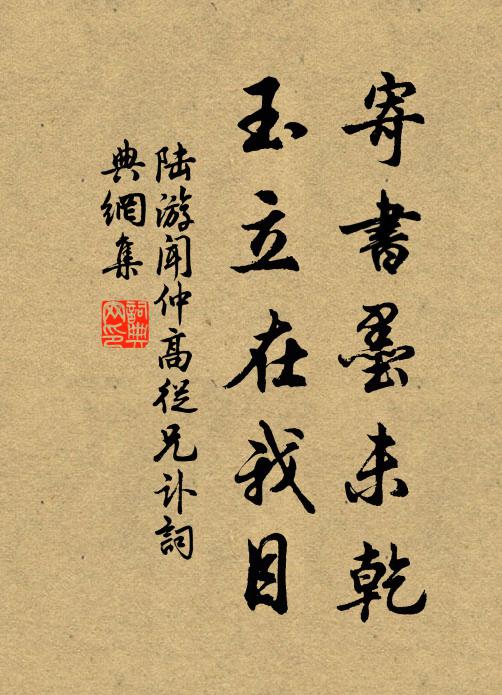 寄書墨未乾
玉立在我目
陸游聞仲高從兄訃詞
典網集
詞典網印